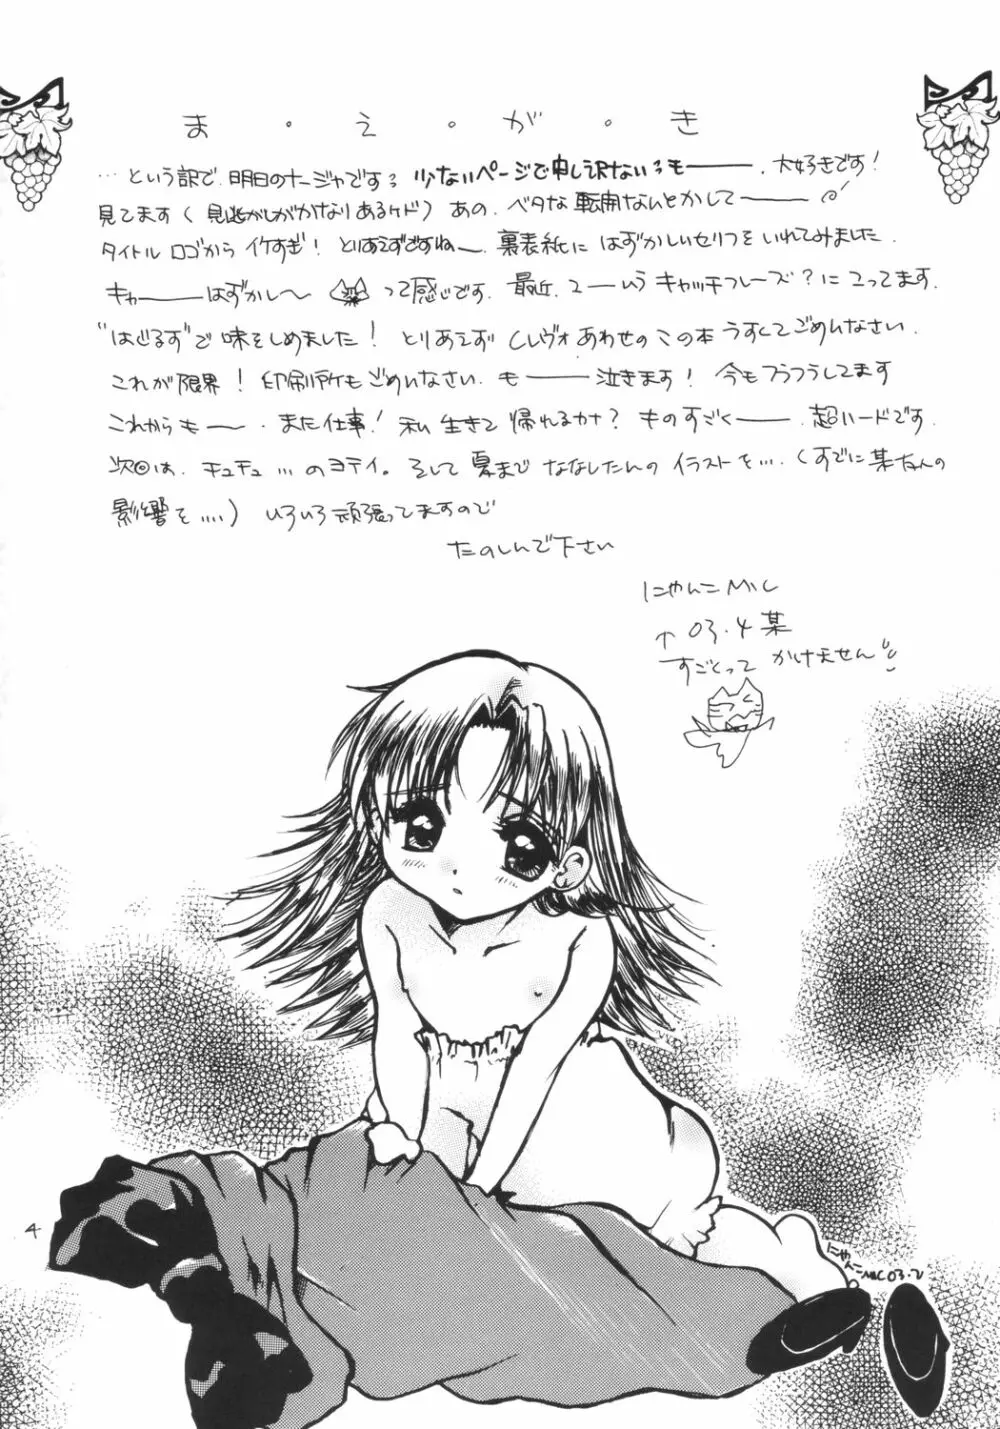 ま・え・が・き
…という訳で、明日のナージャです。少ないページで申し訳ない。もーーー、大好きです!
見てます(見逃がしがかなりあるケド)あの、ベタな転開ないとかしてーーー
タイトルロゴからイケすぎ! とりあえずですねー、裏表紙にはずかしいセリフをいれてみました。
キャーーーはずかし〜 って感じです。最近、こーいうキャッチフレーズ?にこってます。
"はじるす"で味をしめました! とりあえずCレヴォあわせのこの本うすくてごめんなさい。
これが限界! 印刷所もごめんなさい。もーーー泣きます! 今もフラフラしてます
これからもー、また仕事! 私生きて帰れるカナ? ものすごくーーー、超ハードです。
次回は、チュチュ…のヨテイ。そして夏までななしたんのイラストを…(すでに某たんの
影響を….)いろいろ頑張ってますので
たのしんで下さい
にゃんこMIC
↑03.4某
すごとって かけません
4
にゃんこMIC03.2